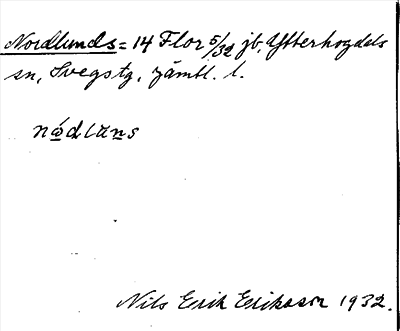 Nordlunds = 14 Flor 5/32 jb, Ytterhogdals
sn, Svegs tg, Jämtl. l.
nǿdlans
Nils Erik Eriksson 1932.